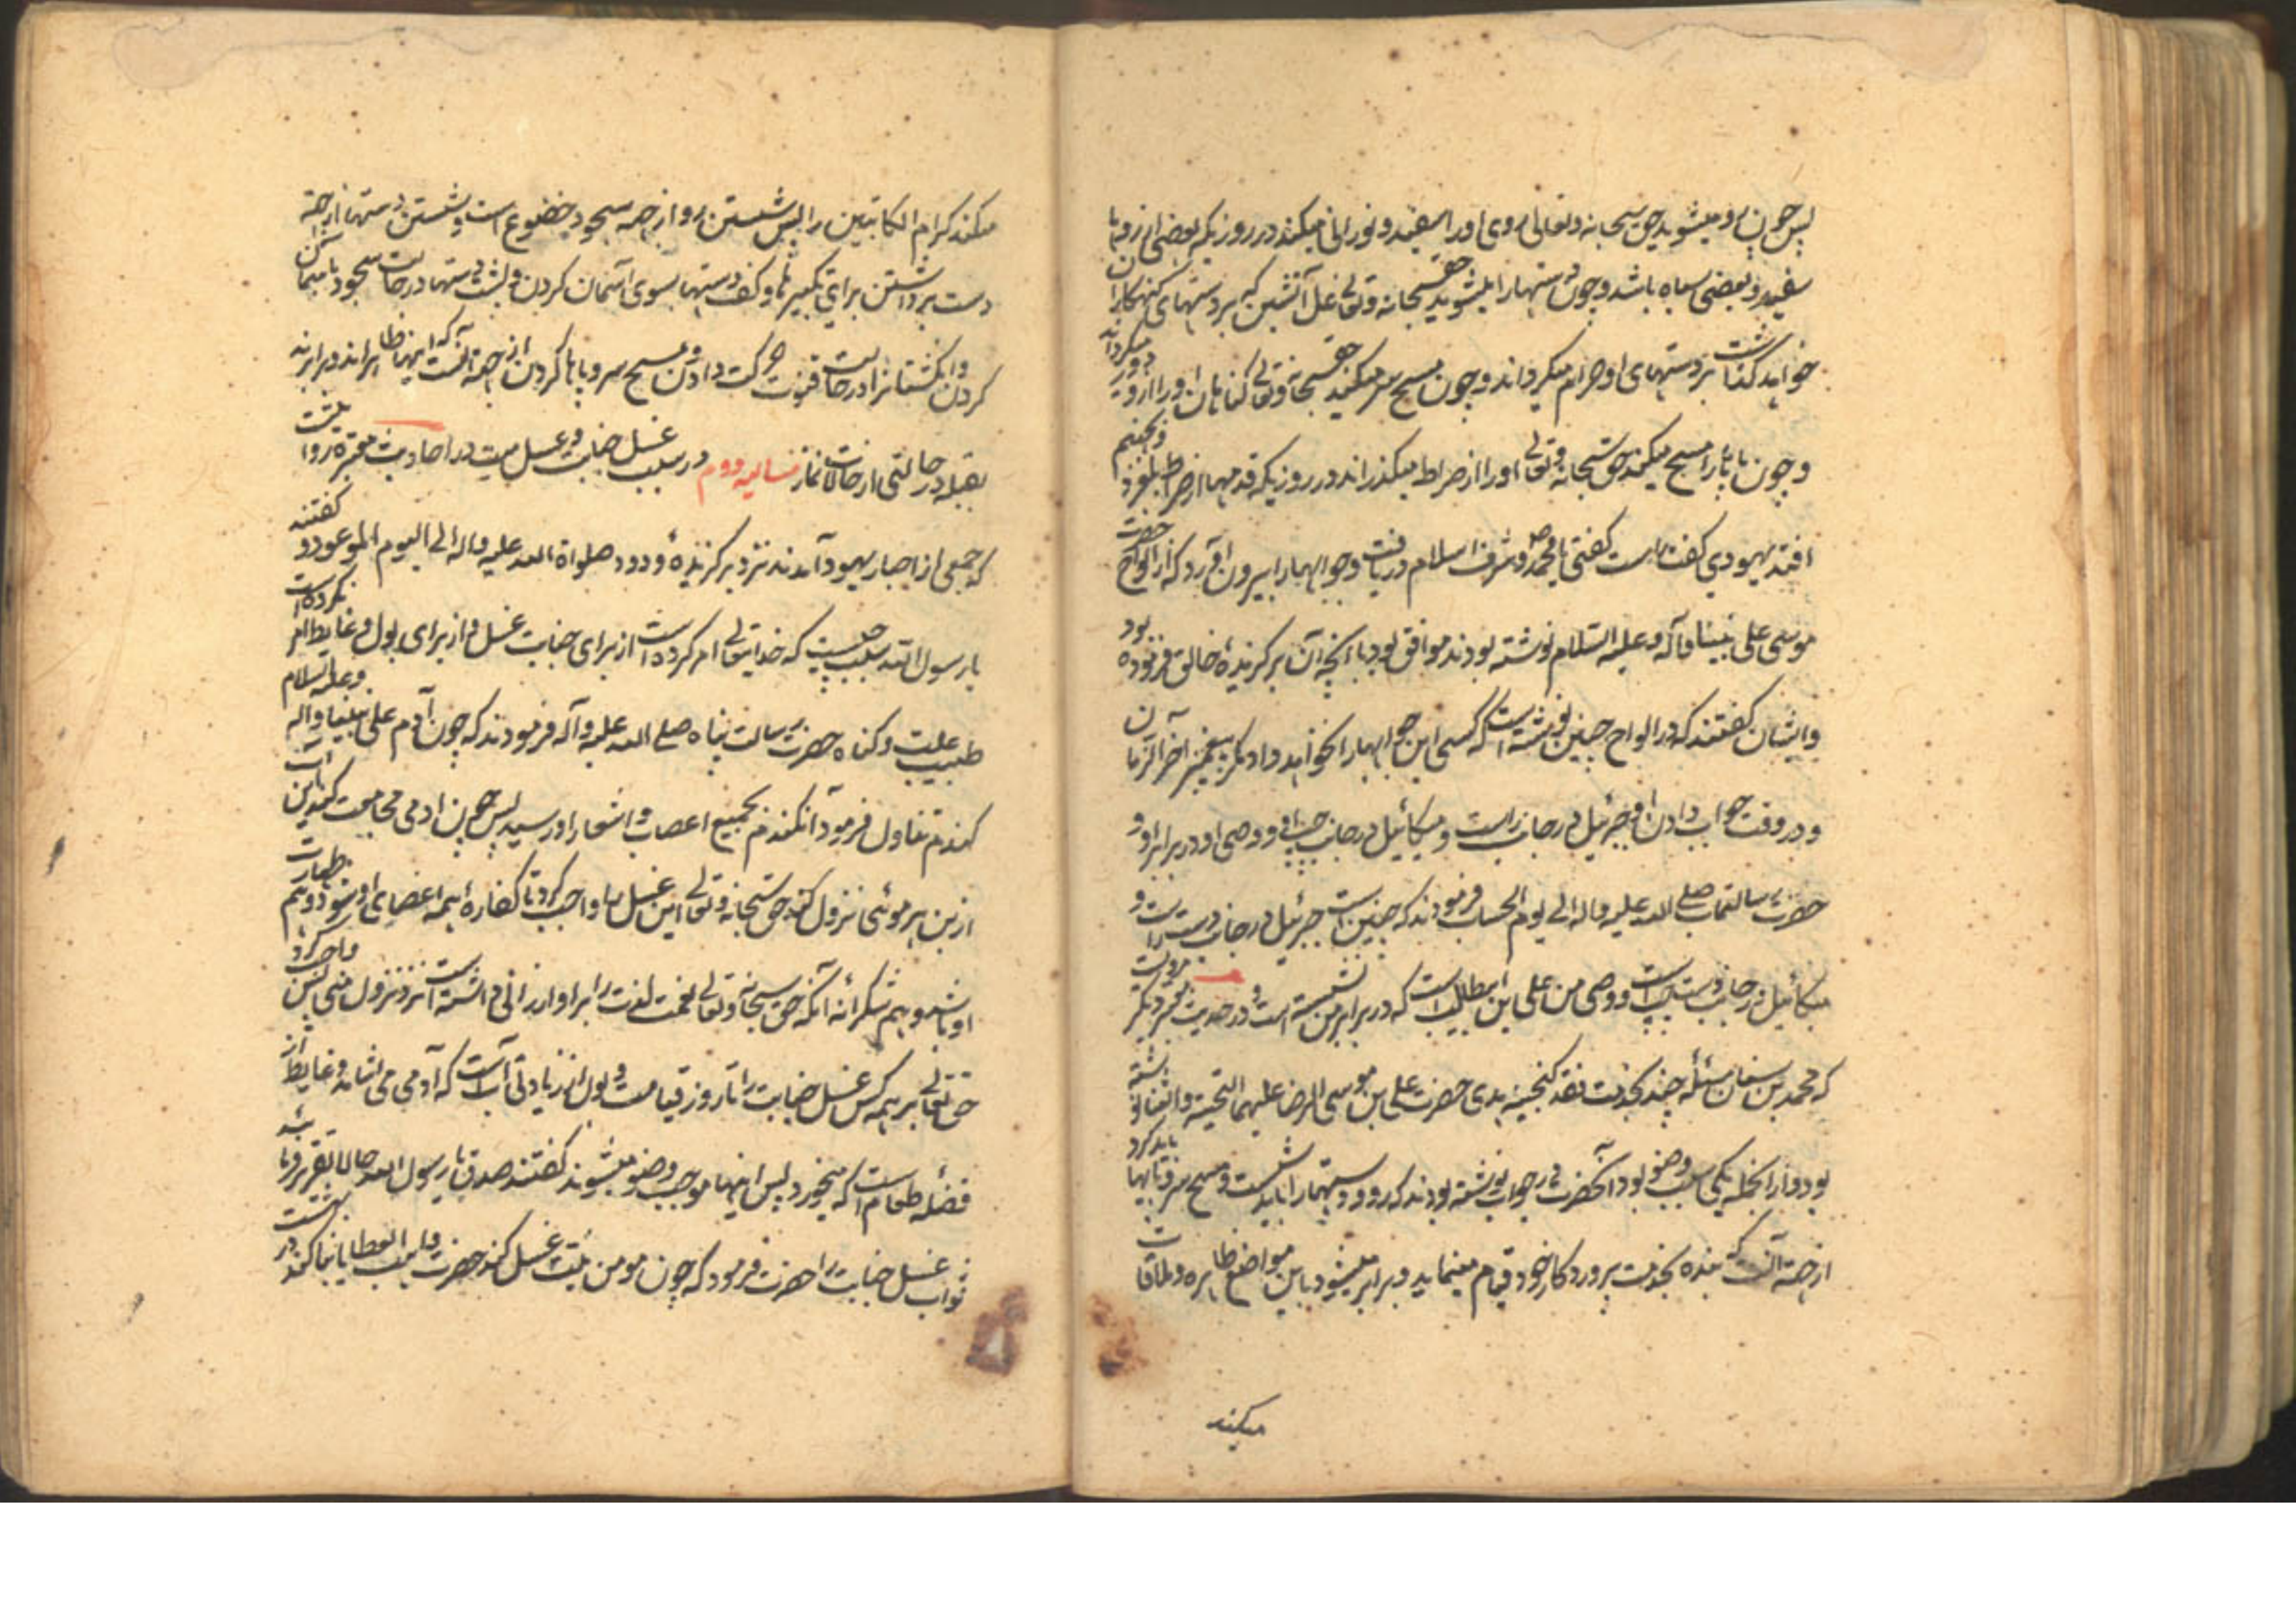 پس چون رو میشوید حق سبحانه و تعالی روی او را سفید و نورانی میکند در روزیکه بعضی از رویها
سفید و بعضی سیاه باشد و چون دستها را میشوید حق سبحانه و تعالی غل آتشین که بر دستهای گنهکاران
خواهد گذاشت بر دستهای او حرام میکرداند و چون مسح سر میکند حق سبحانه و تعالی گناهان او را از وی دور میکرداند
و چون پایها را مسح میکند حق سبحانه و تعالی او را از صراط میگذراند در روزیکه قدمها از صراط بلغزد و بجهنم
افتد یهودی گفت راست گفتی یا محمد و شرف اسلام دریافت و جوابها را بیرون آورد که از الواح حضرت
موسی علی نبینا و آله و علیه السلام نوشته بودند موافق بود با آنچه آن برگزیدهٔ خالق فرموده بود
و ایشان گفتند که در الواح چنین نوشته است که کسی این جوابها را نخواهد داد مگر پیغمبر آخر الزمان
و در وقت جواب دادن او جبرئیل در جانب راست و میکائیل در جانب چپ و وصی او در برابر او و
حضرت رسالتماب صلی الله علیه و اله الی یوم الحساب فرمودند که چنین است جبرئیل در جانب دست راست و
میکائیل در جانب دست چپ است و وصی من علی ابن ابیطالب است که در برابر من نشسته است و در حدیث معتبر دیگر مرویست
که محمد بن سنان مسئلهٔ چند بخدمت نقد گنجینه هدی حضرت علی بن موسی الرضا علیهما التحیة و الثنا نوشته
بود و از انجمله یکی سبب وضو بود آنحضرت در جواب نوشته بودند که رو و دستها را باید شست و مسح سر و پایها باید کرد
از جهة آنست که بنده بخدمت پروردکار خود قیام مینماید و برابر میشود باین مواضع ظاهره و ملاقات
میکند
میکند کرام الکاتبین را پس شستن رو از جهه سجود و خضوع است و شستن دستها از جهة
دست برداشتن برای تکبیرها و کف دستها بسوی آسمان کردن و پشت دستها در حالت سجود با
کردن و انگشتانرا در حالت قنوت حرکت دادن و مسح سر و پاها کردن از جهة آنست که اینها ظاهراند و برابرند
بقبله در حالتی از حالات نماز مسایه دوم در سبب غسل جنابت و غسل میت در احادیث معتبره روایتست
که جمعی از احبار یهود آمدند نزد برگزیدهٔ ودود صلواة الله علیه و اله الی الیوم الموعود و گفتند
یا رسول الله سبب چیست که خدایتعالی امر کرده است از برای جنابت غسل و از برای بول و غایط امر نکرده است
طبیب علت و گناه حضرت رسالت پناه صلی الله علیه و آله فرمودند که چون آدم علی نبینا و اله و علیه السلام
گندم تناول فرمود آن گندم بجمیع اعصاب و اشعار او رسید پس چون ادمی مجامعت کند این آب
از بن هر موئی نزول کند حق سبحانه و تعالی این غسل را واجب کرد تا کفاره همه اعضای او شود و هم طهارت
او باشد و هم شکرانهٔ آنکه حق سبحانه و تعالی نعمت لذت را بر او ارزانی داشته است نزد نزول منی پس واجب کرد
حق تعالی بر همه کس غسل جنابت را تا روز قیامت و بول از زیادتی آبست که آدمی می آشامد و غایط از
فضلهٔ طعام است که میخورد پس اینها موجب وضو میشوند گفتند صدق یا رسول الله حالا تقریر فرما
ثواب غسل جنابت را حضرت فرمود که چون مومن نیت غسل کند حضرت واهب العطایا بنا کند در بهشت